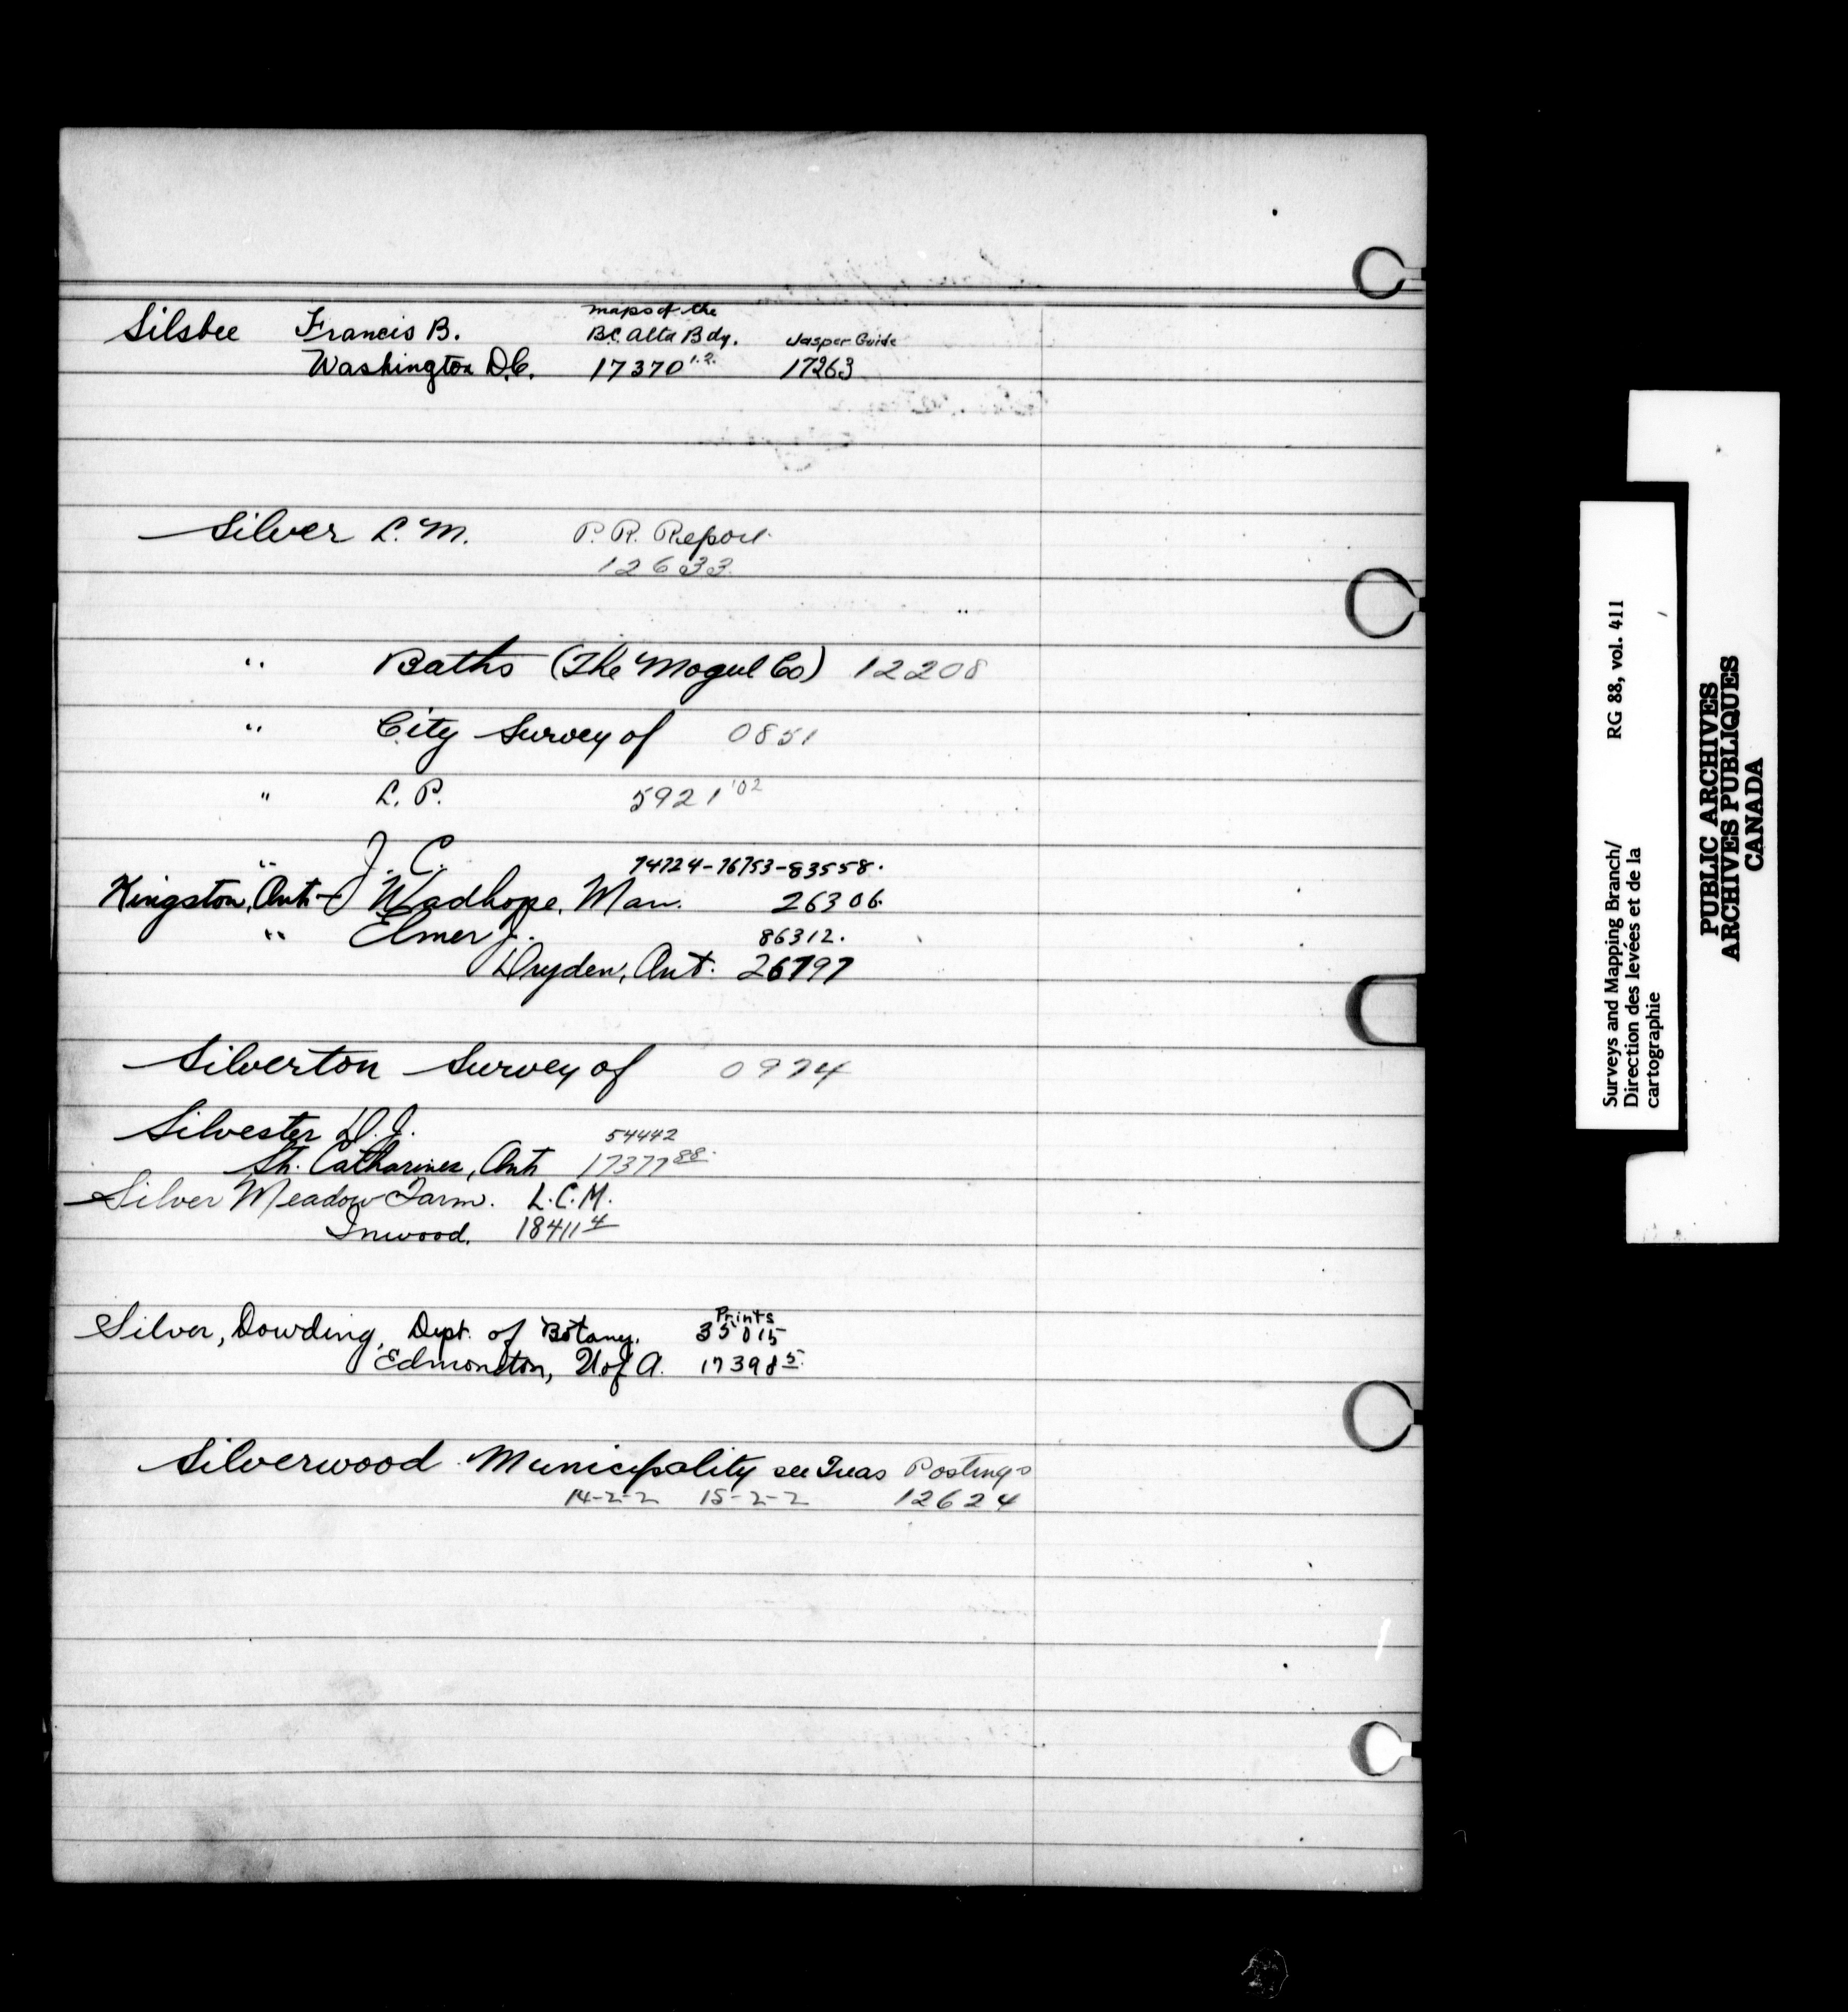 maps of the
Silsbee Francis B. B.C. Alta Bdy. Jasper Guide
Washington D.C. 17370 1.2. 17263
Silver L. M. P. R. Report
12633
" Baths (The Mogul Co) 12208
" City Survey of 0851
" L. P. 5921 '02
" J. C. 74724-76753-83558.
Kingston, Ont - Wadhope, Man. 26306
" Elmer J. 86312.
Dryden, Ont. 26797
Silverton Survey of 0974
Silvester D. J. 54442
St. Catharines, Ont 17377 88.
Silver Meadow Farm. L.C.M.
Inwood. 18411 4
Prints
Silver, Dowding, Dept. of Botany. 35015
Edmonton, U of A. 17398 5.
Silverwood Municipality see Treas Postings
14-2-2 15-2-2 12624
Surveys and Mapping Branch/ RG 88, vol. 411
Direction des levées et de la
cartographie
PUBLIC ARCHIVES
ARCHIVES PUBLIQUES
CANADA